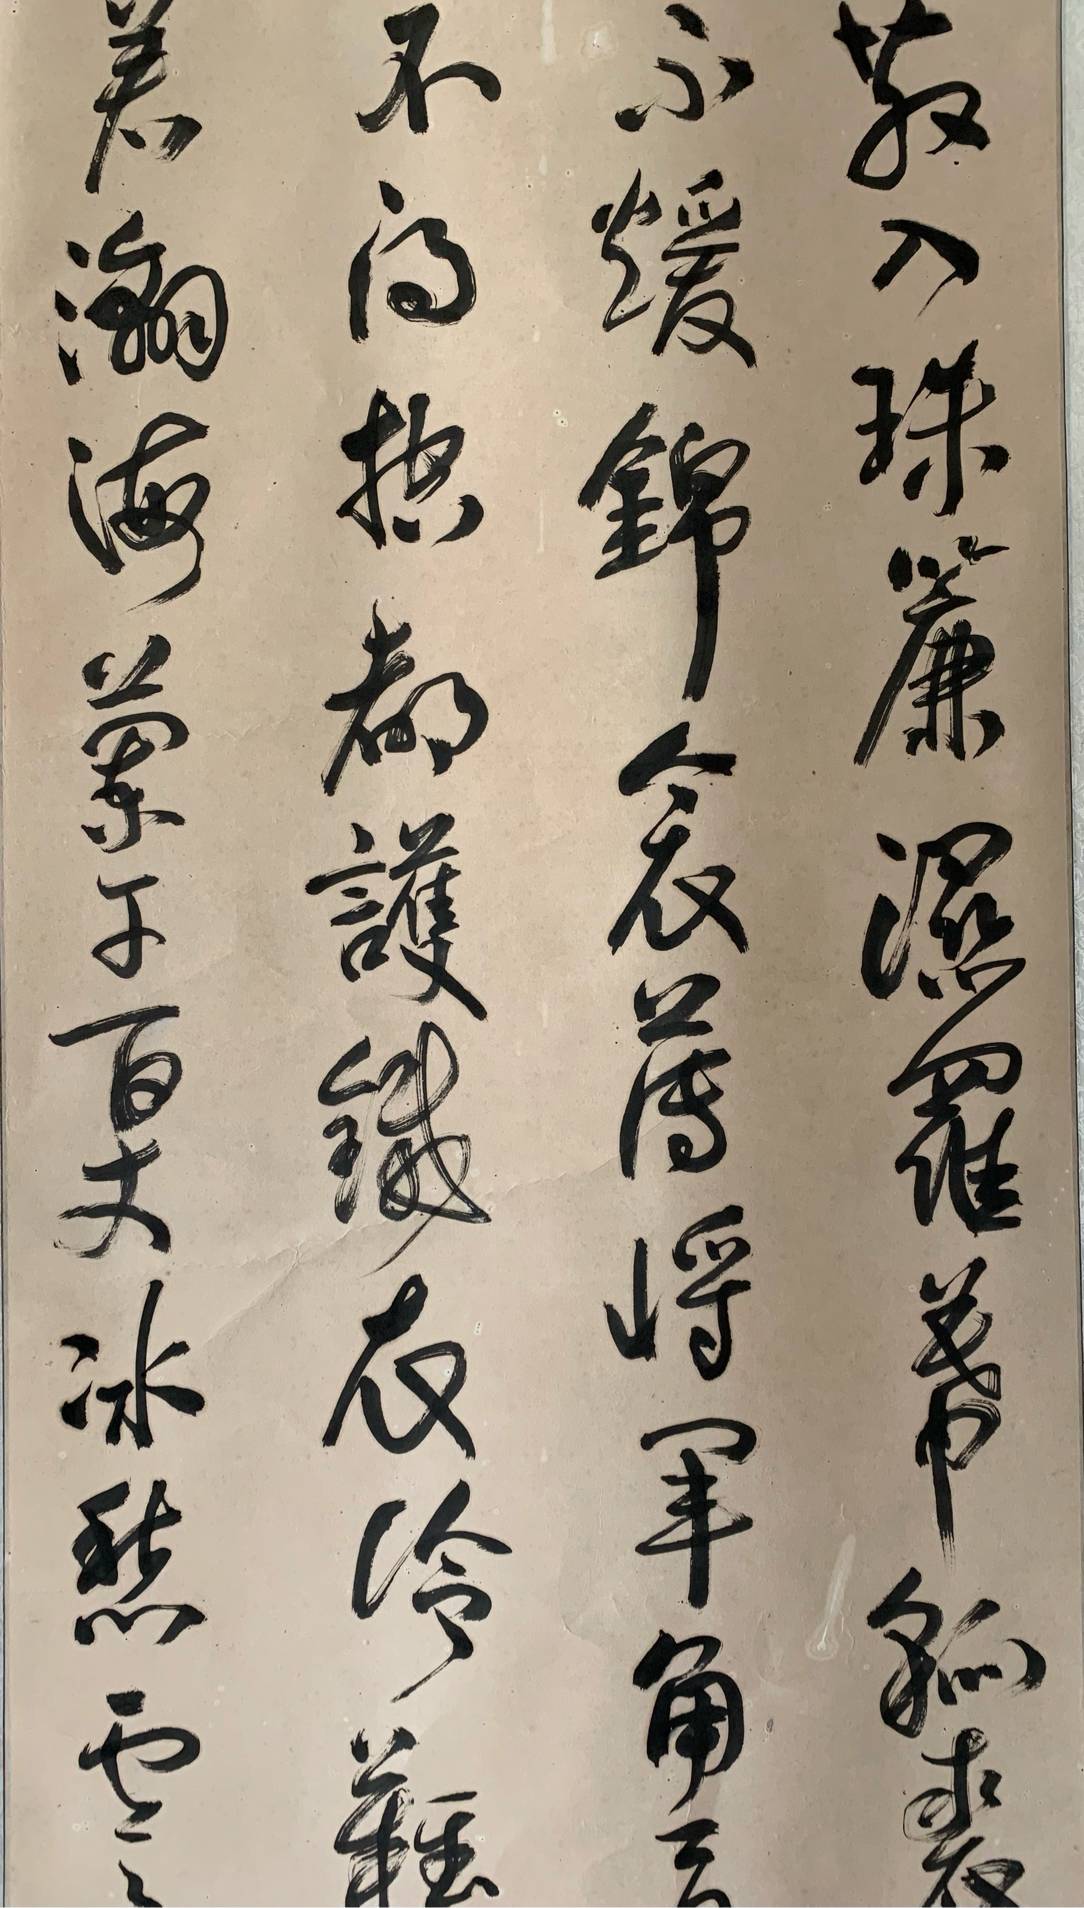 散入珠簾濕羅幕狐裘
不煖錦衾薄將軍角弓
不得控都護鐵衣冷難
着瀚海闌干百丈冰愁雲